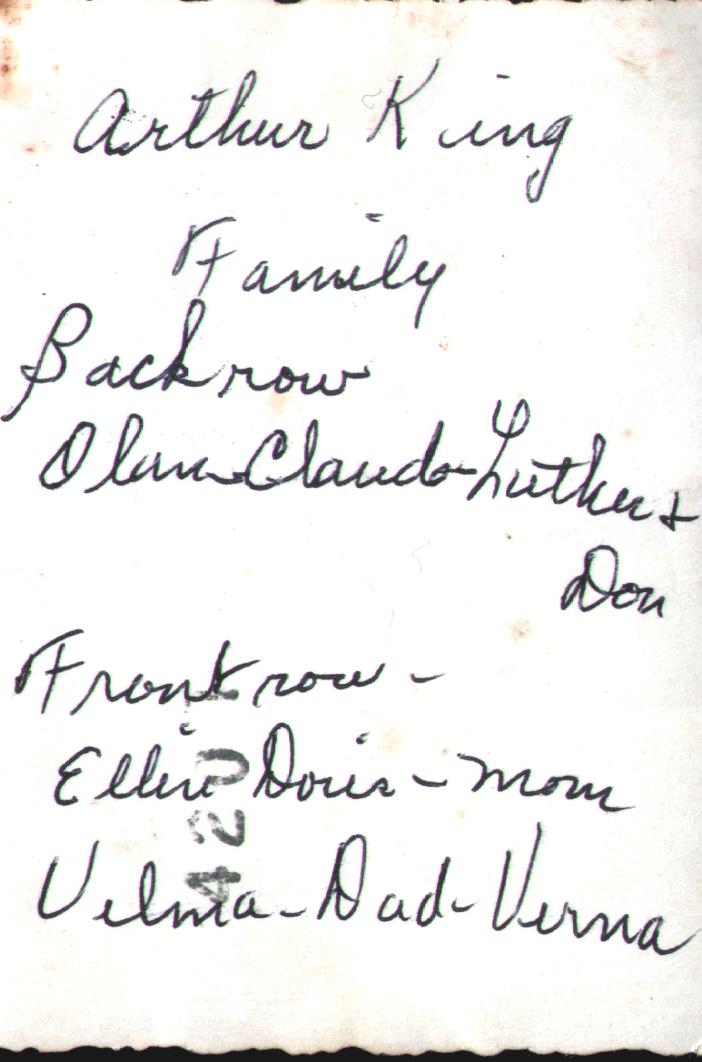 Arthur King
Family
Back row
Olan-Claude-Luther &
Don
Front row -
Doris - Mom
Velma - Dad - Verna